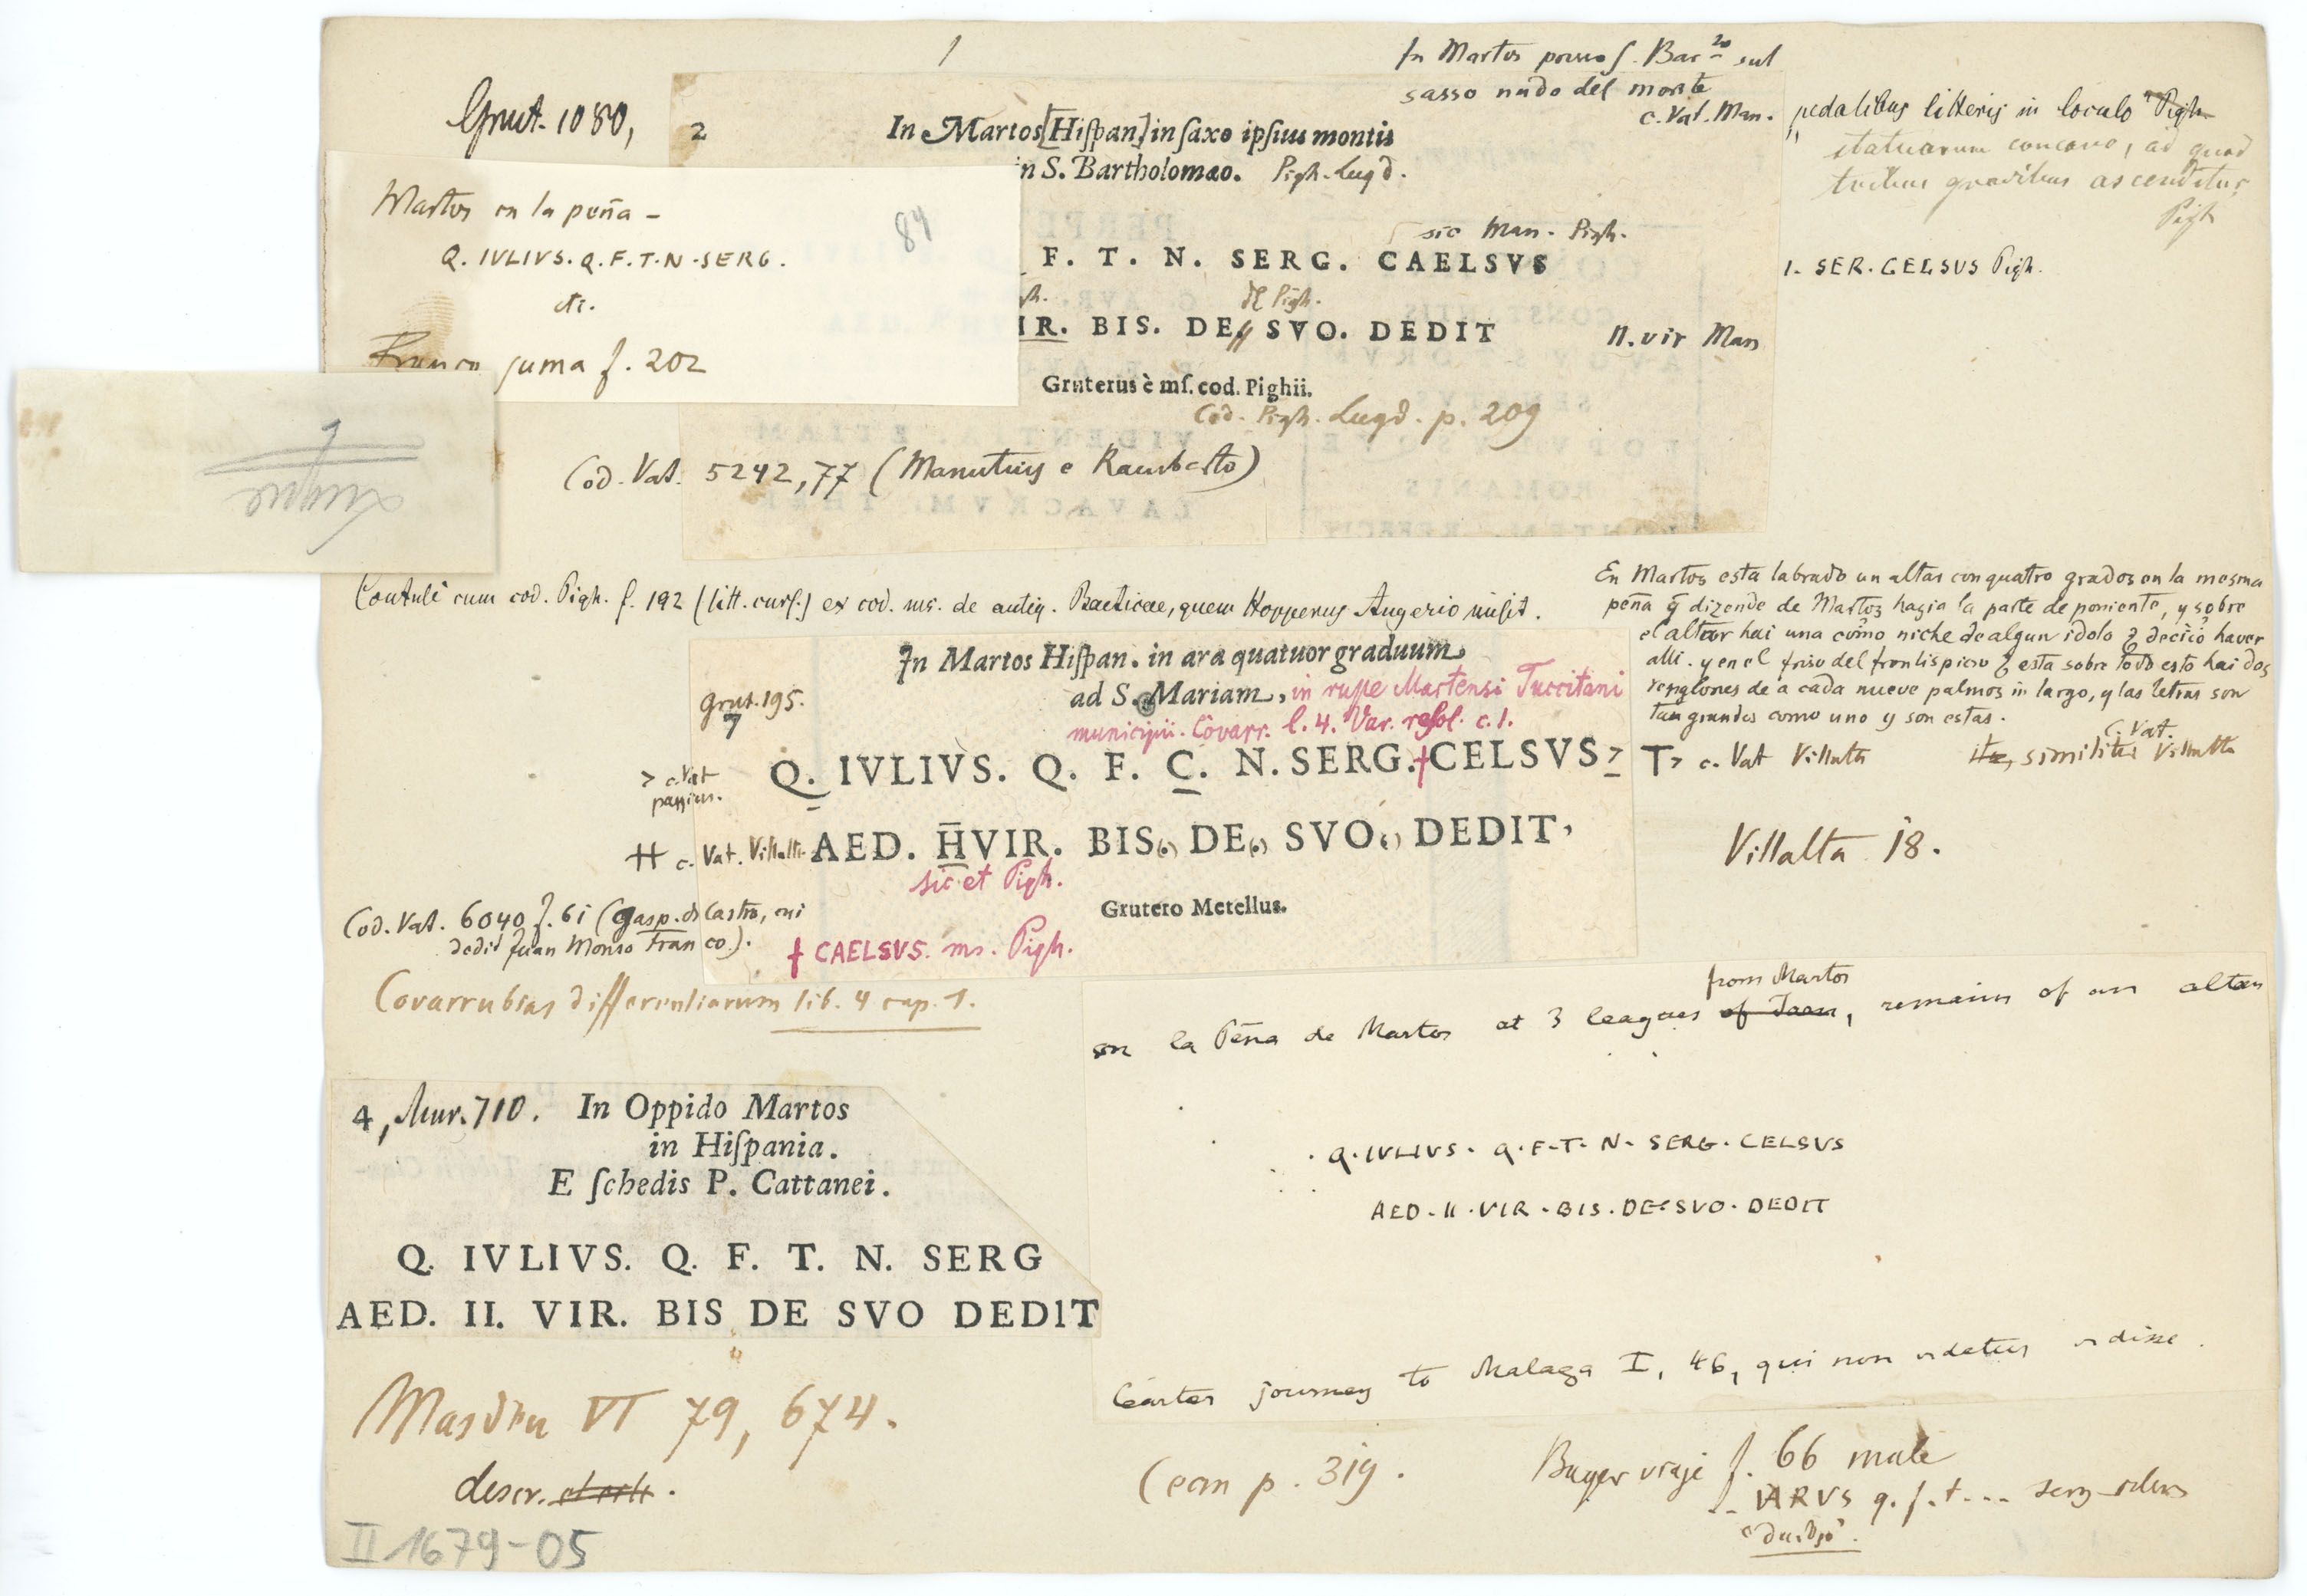 1
In Martos presso S. Bar.eo sul
sasso nudo del monte
c. Vat. Man.
Grut. 1080,
2
In Martos [Hiſpan] in ſaxo ipſius montis
in S. Bartholomæo. Pigh. Lugd.
pedalibus litteris in loculo Pigh
statuarum concavo, ad quod
tribus gradibus ascenditur
Pigh
Martos en la peña -
84
Q. IVLIVS. Q. F. T. N. SERG.
etc.
Franco suma f. 202
sic Man. Pigh.
F. T. N. SERG. CAELSVS
1. SER. CELSUS Pigh.
Pigh.
IR. BIS. DE SVO. DEDIT
II. vir Man
Gruterus è mſ. cod. Pighii.
Cod. Pigh. Lugd. p. 209
Luque
Cod. Vat. 5242, 77 (Manutius e Ramberto)
Contuli cum cod. Pigh. f. 192 (litt. curs.) ex cod. ms. de antiq. Baeticae, quem Hopperus Augerio misit.
En Martos esta labrado un altar con quatro grados en la mesma
peña q̃ dizende de Martos hazia la parte de poniente, y sobre
el altar hai una como niche de algun idolo q̃ decio haver
alli. y en el friso del frontispicio q̃ esta sobre todo esto hai dos
renglones de a cada nueve palmos in largo, y las letras son
tan grandes como uno y son estas.
C. Vat.
similiter Villalta
In Martos Hiſpan. in ara quatuor graduum
ad S. Mariam, in rupe Martensi Tuccitani
municipii. Covarr. l. 4. Var. resol. c. 1.
Grut. 195.
7
> c. Vat
passim.
Q. IVLIVS. Q. F. C. N. SERG. †CELSVS >
T > c. Vat Villalta
H c. Vat. Villalta
AED. H̄VIR. BIS. DE. SVO. DEDIT,
sic et Pigh.
Villalta 18.
Grutero Metellus.
Cod. Vat. 6040 f. 61 (Gasp. de Castro, cui
dedit Juan Alonso Franco).
† CAELSVS. ms. Pigh.
Covarrubias differentiarum lib. 4 cap. 1.
from Martos
on la Peña de Martos at 3 leagues of Jaen, remains of an altar
Q. IVLIVS. Q. F. T. N. SERG. CELSVS
AED. II. VIR. BIS. DE. SVO. DEDIT
Carter journey to Malaga I, 46, qui non videtur vidisse.
4, Mur. 710. In Oppido Martos
in Hiſpania.
E ſchedis P. Cattanei.
Q. IVLIVS. Q. F. T. N. SERG
AED. II. VIR. BIS DE SVO DEDIT
Masdeu VI 79, 674.
descr.
Cean p. 319.
Bayer viaje f. 66 male
VARVS q. f. t. ... serg
II 1679-05